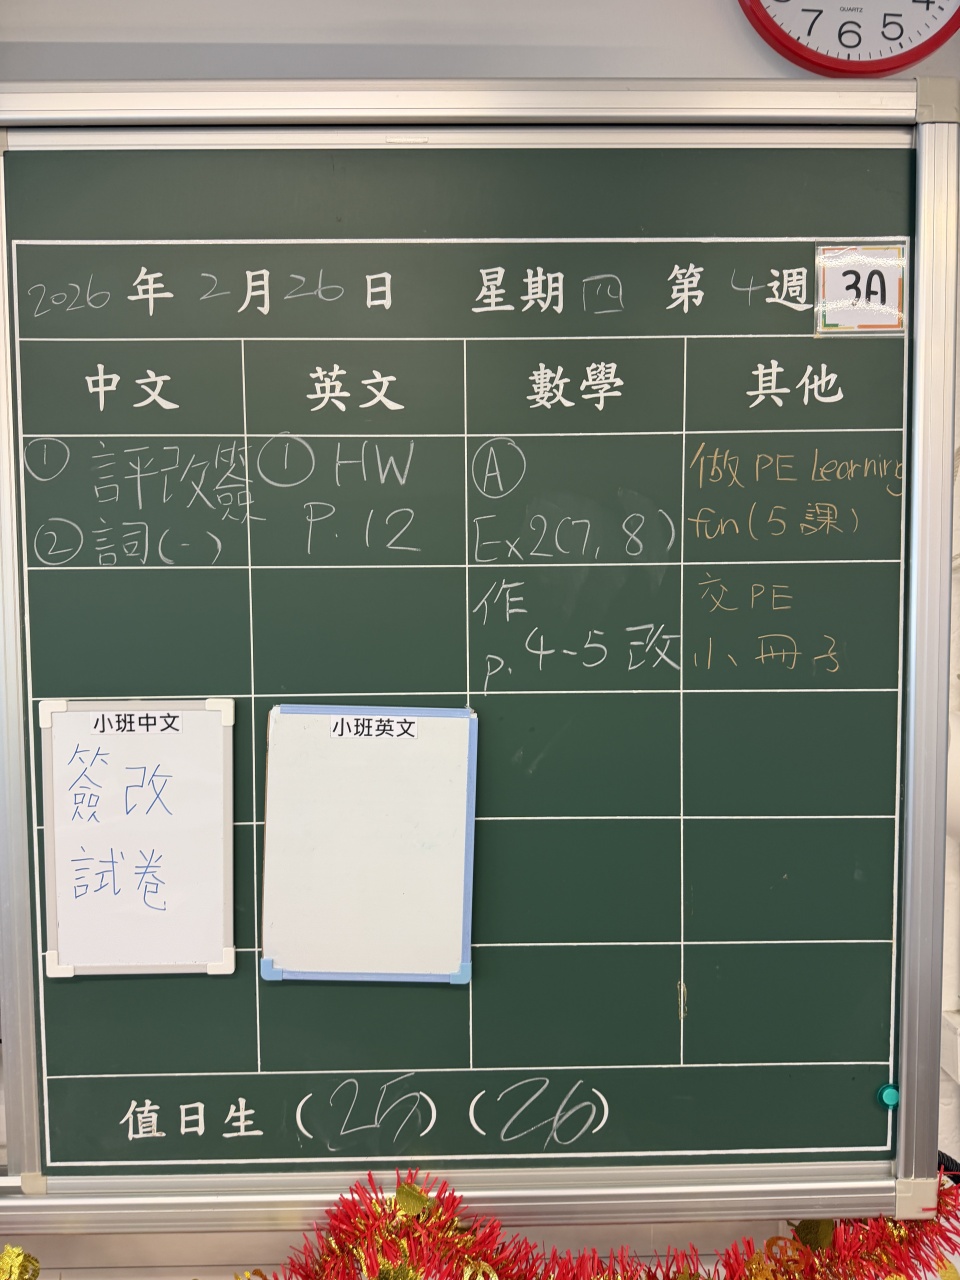 7 6 5 4
QUARTZ
2026 年 2 月 26 日 星期 四 第 4 週 3A
中文 英文 數學 其他
① 評改簽
② 詞(一)
① HW
P. 12
Ⓐ
Ex2(7, 8)
做 PE Learning
fun (5 課)
作
p. 4-5 改
交 PE
小冊子
小班中文
簽改
試卷
小班英文
值日生 (25) (26)